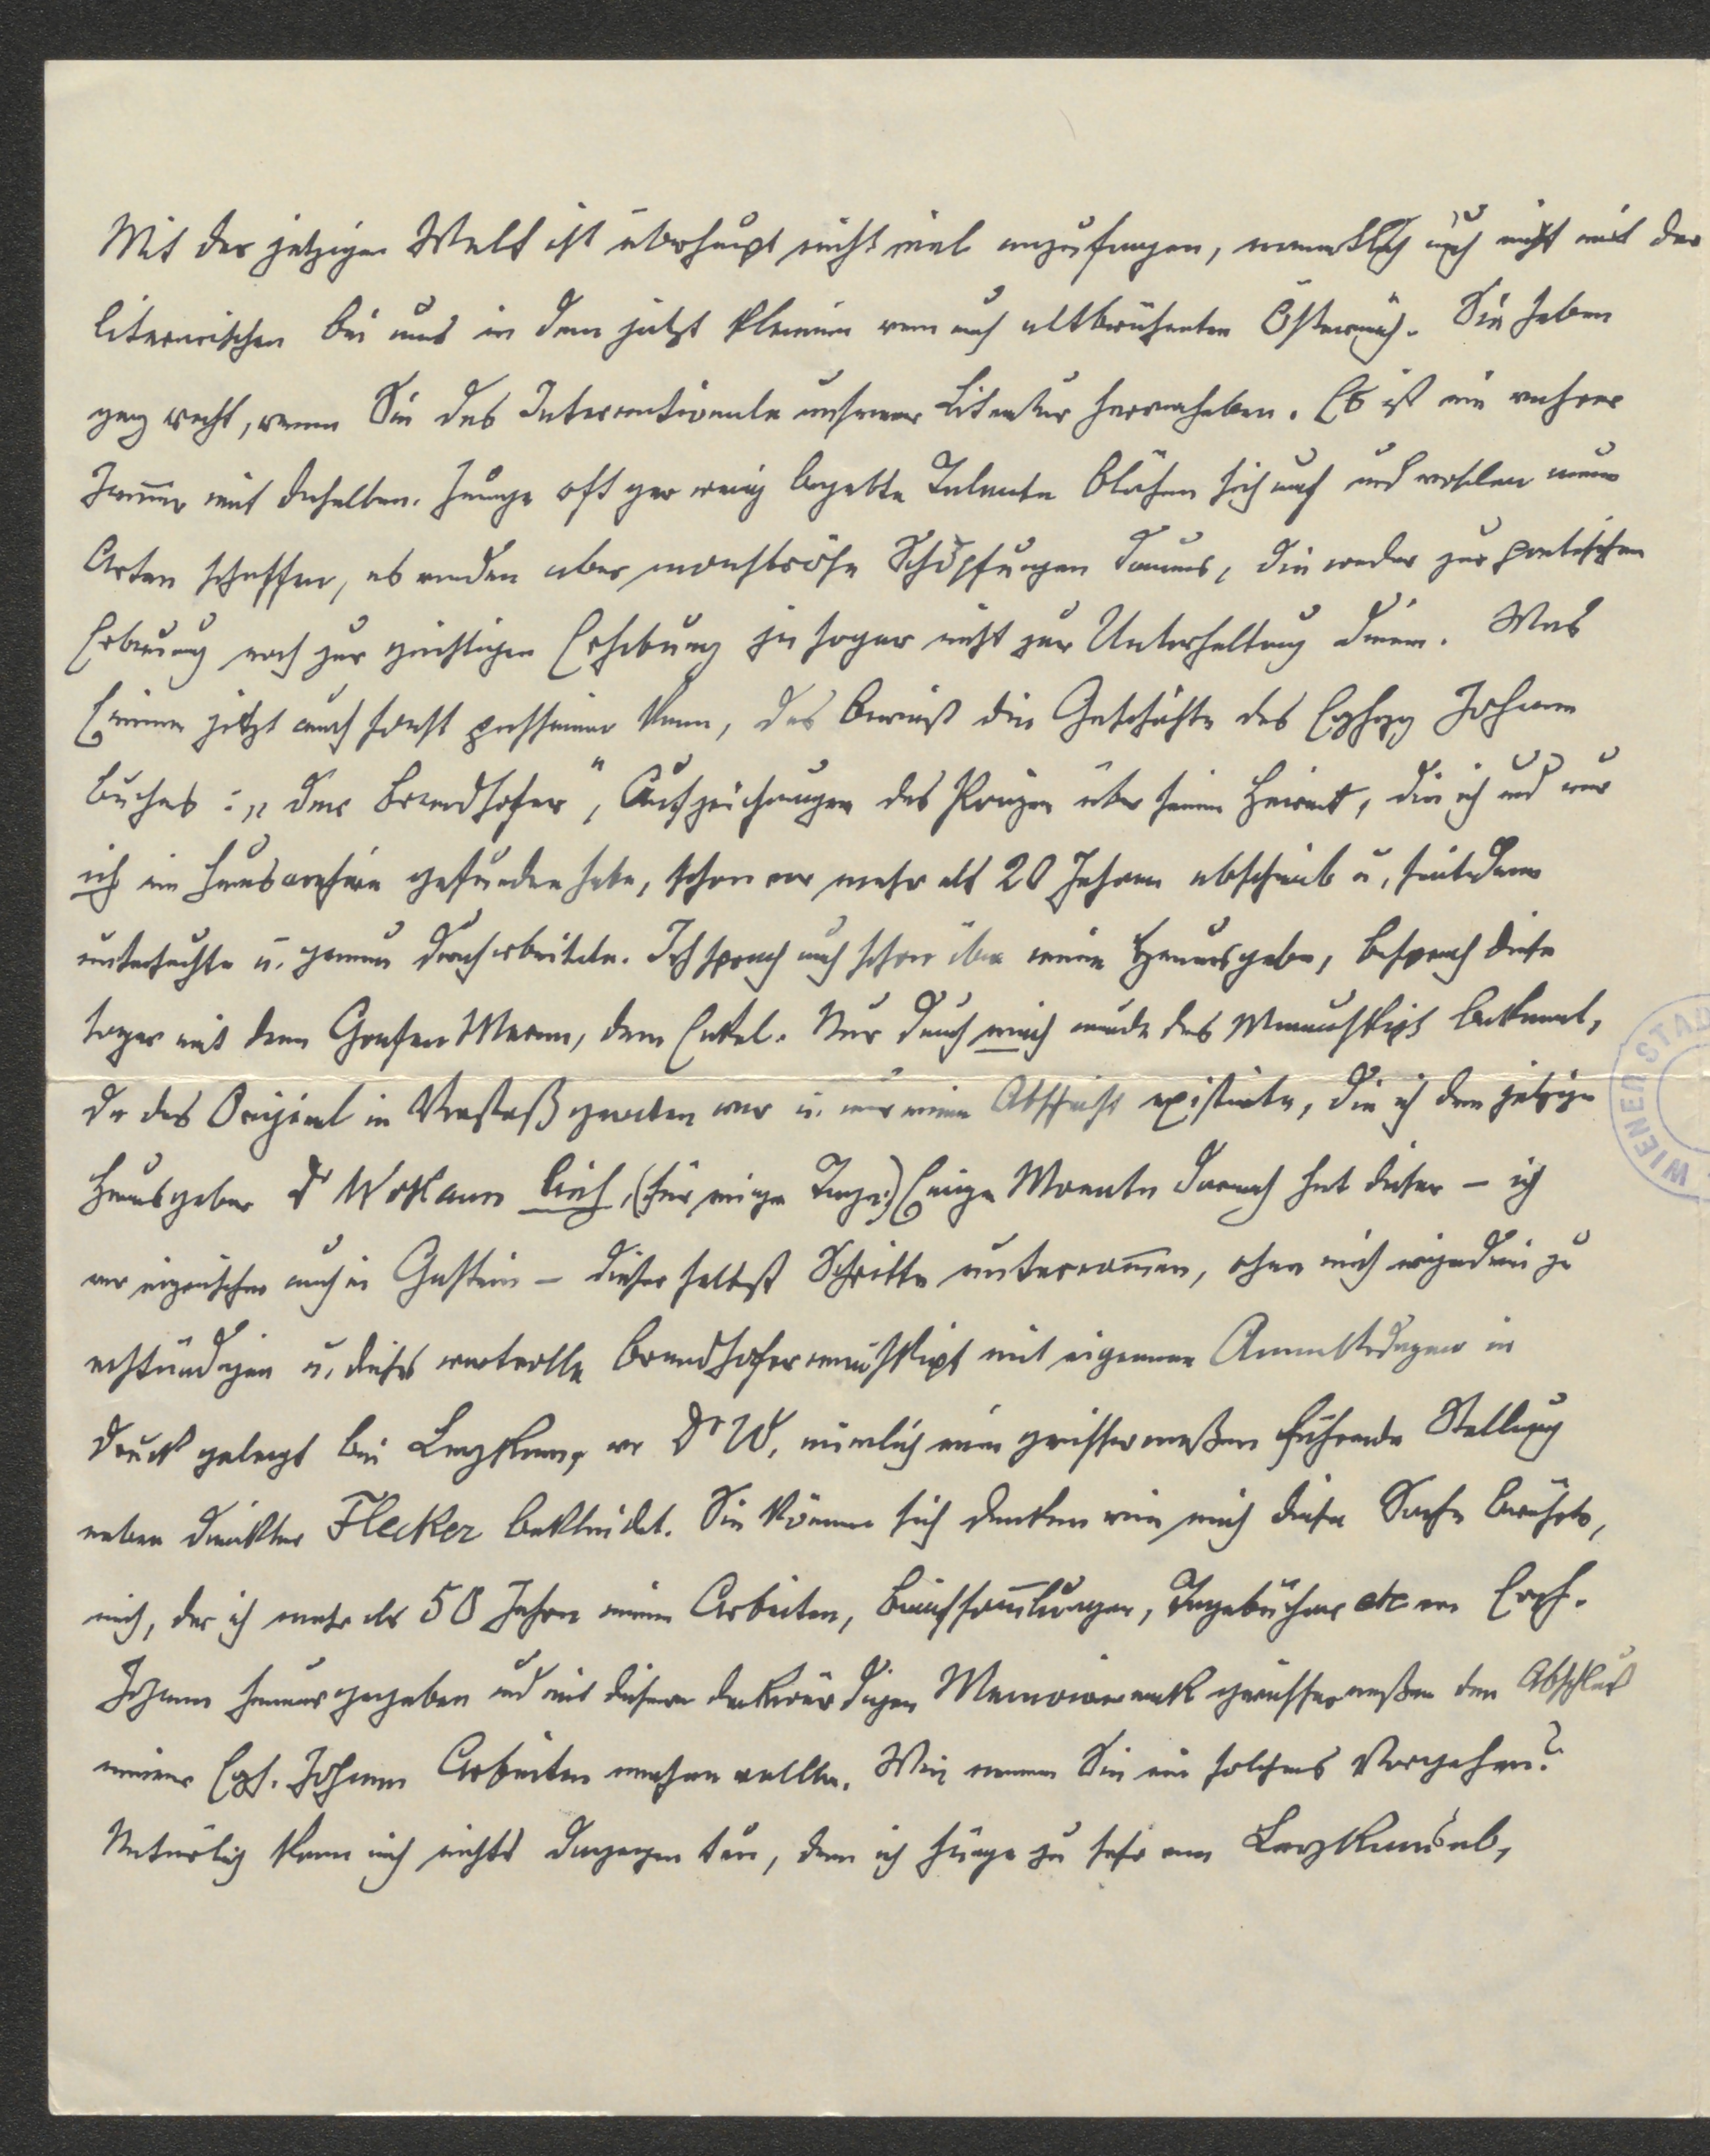 Mit der jetzigen Welt ist überhaupt nicht viel anzufangen, namentlich auch nicht mit der
literarischen bei uns in dem jetzt kleinen wenn auch altberühmten Österreich. Sie haben
ganz recht, wenn Sie das Internationale unserer Literatur hervorheben. Es ist ein wahrer
Jam̄er mit derselben. Junge oft gar wenig begabte Talente blähen sich auf und wollen neue
Arten schaffen, es werden aber monströse Schöpfungen daraus, die weder zur poetischen
Erbauung noch zur geistigen Erhebung ja sogar nicht zur Unterhaltung dienen. Was
Einem jetzt auch sonst passieren kann, das beweist die Geschichte des Erzhzg Johann
Buches: „der Brandhofer", Aufzeichnungen des Prinzen über seine Heirat, die ich und nur
ich im Hausarchive gefunden habe, schon vor mehr als 20 Jahren abschrieb u. seitdem
untersuchte u. genau durcharbeitete. Ich sprach auch schon über meine Herausgabe, besprach diese
sogar mit dem Grafen Meran, dem Enkel. Nur durch mich wurde das Manuskript bekannt,
da das Original in Verstoß geraten war u. nur meine Abschrift existierte, die ich dem jetzigen
Herausgeber Dr Wokaun lieh, (für einige Tage.) Einige Monate darnach hat dieser – ich
war inzwischen auch in Gastein – dieser selbst Schritte unternom̄en, ohne mich irgendwie zu
verständigen u. dieses wertvolle Brandhofermanuskript mit eigenen Anmerkungen in
Druck gelegt bei Leykam, wo Dr W. nämlich eine gewissermaßen führende Stellung
neben Direktor Flecker bekleidet. Sie können sich denken wie mich diese Sache berührte,
mich, der ich mehr als 50 Jahre meine Arbeiten, Briefsam̄lungen, Tagebücher etc von Erzh.
Johann herausgegeben und mit diesem denkwürdigen Memoirewerk gewissermaßen den Abschluß
meiner Ezh. Johann Arbeiten machen wollte. Wie nennen Sie ein solches Vorgehen?
Natürlich kann ich nichts dagegen tun, denn ich hänge zu sehr von Leykam ab,
WIENER STAD